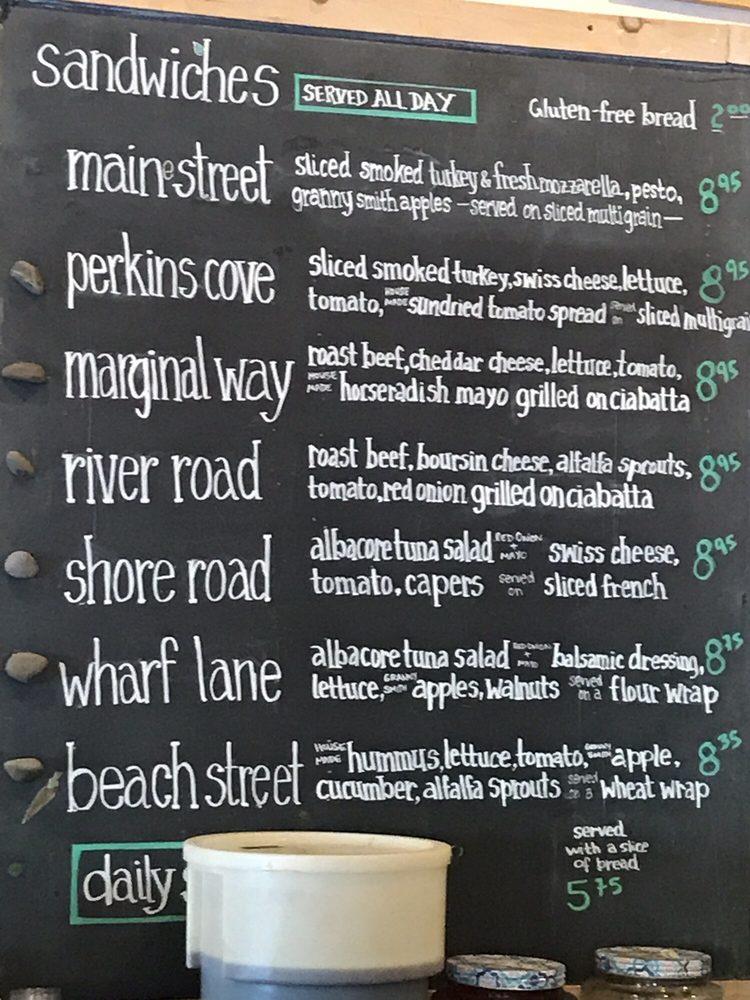 sandwiches SERVED ALL DAY Gluten-free bread 2⁰⁰
main e street sliced smoked turkey & fresh mozzarella, pesto, 8⁹⁵
granny smith apples —served on sliced multigrain—
perkins cove sliced smoked turkey, swiss cheese, lettuce, 8⁹⁵
tomato, HOUSE MADE sundried tomato spread served on sliced multigrain
marginal way roast beef, cheddar cheese, lettuce, tomato, 8⁹⁵
HOUSE MADE horseradish mayo grilled on ciabatta
river road roast beef, boursin cheese, alfalfa sprouts, 8⁹⁵
tomato, red onion grilled on ciabatta
shore road albacore tuna salad RED ONION + MAYO swiss cheese, 8⁹⁵
tomato, capers served on sliced french
wharf lane albacore tuna salad RED ONION + MAYO balsamic dressing, 8⁷⁵
lettuce, GRANNY SMITH apples, walnuts served on a flour wrap
beach street HOUSE MADE hummus, lettuce, tomato, GRANNY SMITH apple, 8³⁵
cucumber, alfalfa sprouts served on a wheat wrap
served
with a slice
of bread
daily 5⁷⁵